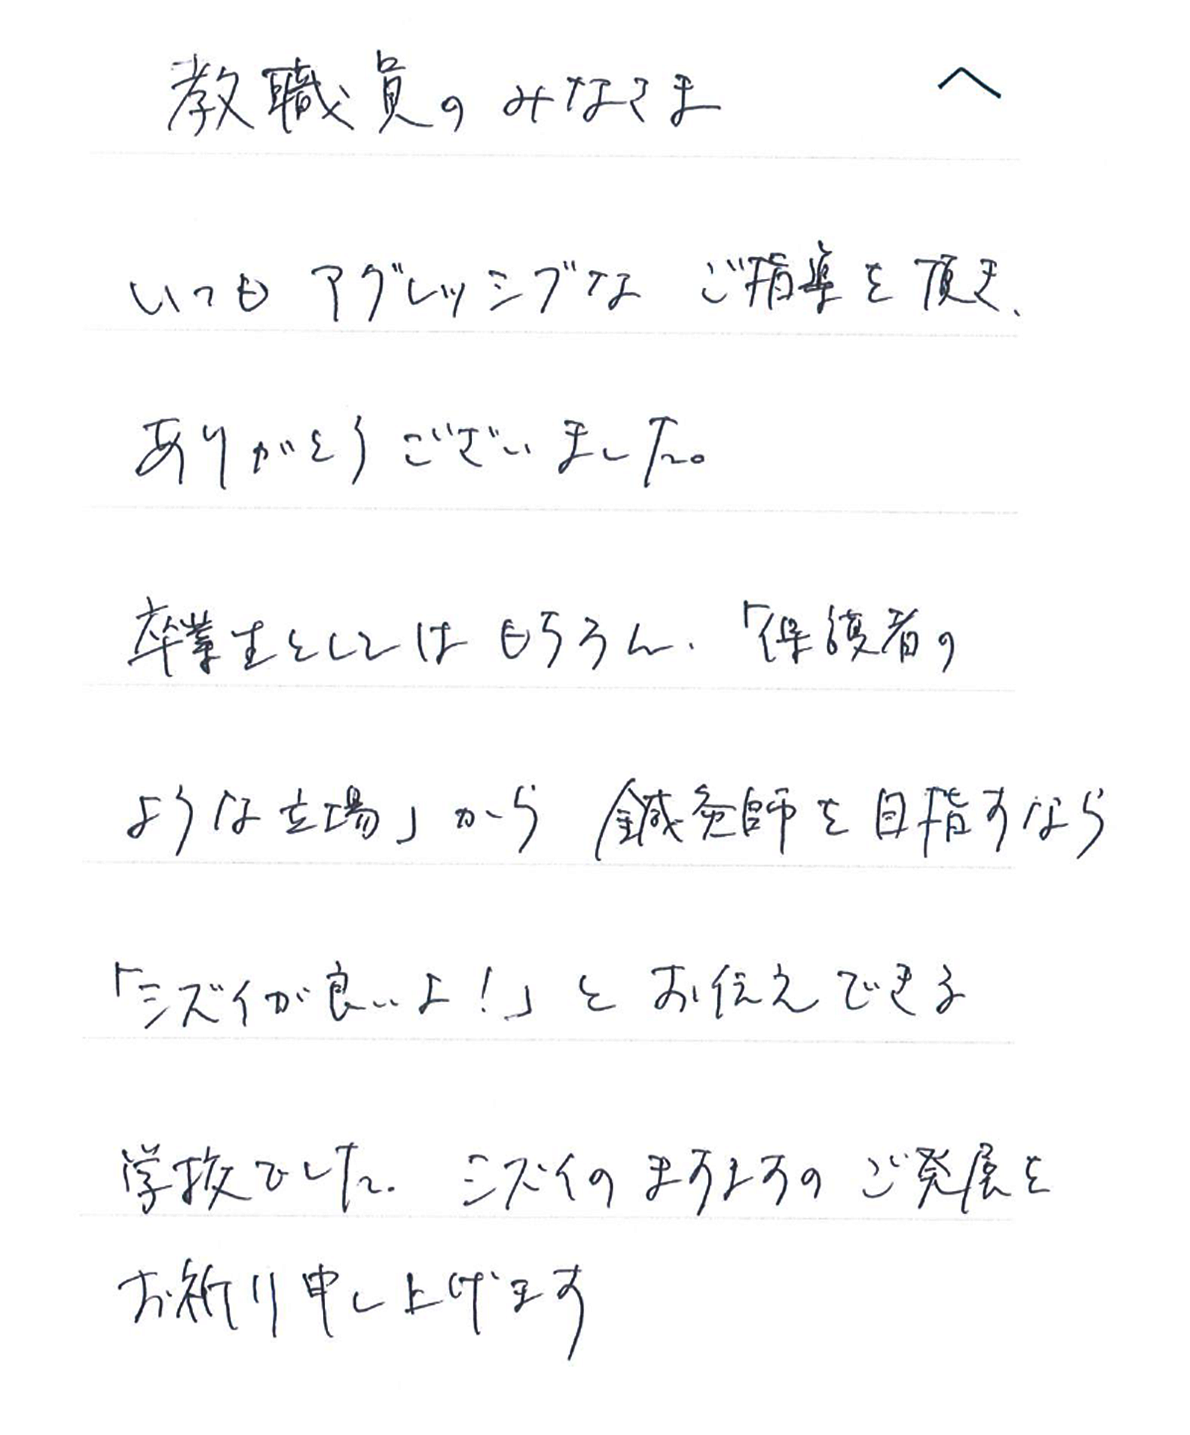 教職員のみなさま へ
いつも アグレッシブな ご指導を頂き、
ありがとうございました。
卒業生としてはもちろん、「保護者の
ような立場」から 鍼灸師を目指すなら
「シズイが良いよ!」と お伝えできる
学校でした。 シズイのますますの ご発展を
お祈り申し上げます